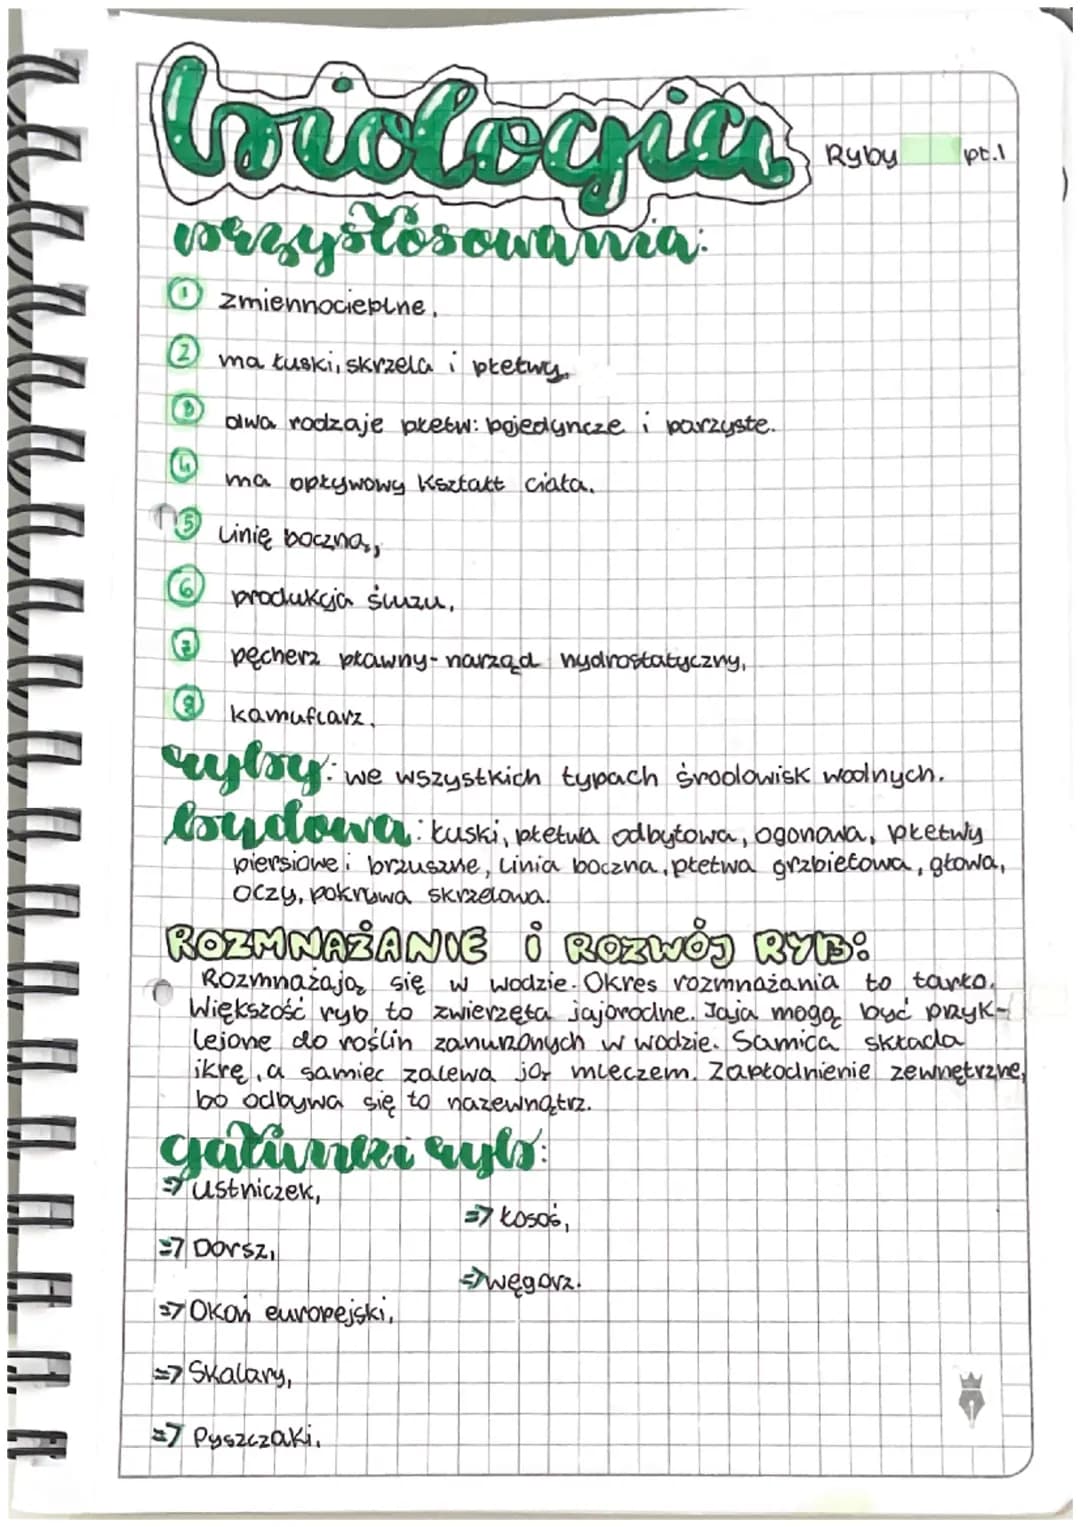 biologia
Ryby pt.1
przystosowania:
1 zmiennocieplne,
2 ma łuski, skrzela i płetwy,
3 dwa rodzaje płetw: pojedyncze i parzyste.
4 ma opływowy kształt ciała,
5 Linię boczną,
6 produkcja śluzu,
7 pęcherz pławny - narząd hydrostatyczny,
8 kamuflarz.
ryby: we wszystkich typach środowisk wodnych.
budowa: łuski, płetwa odbytowa, ogonowa, płetwy
piersiowe i brzuszne, Linia boczna, płetwa grzbietowa, głowa,
oczy, pokrywa skrzelowa.
ROZMNAŻANIE i ROZWÓJ RYB:
Rozmnażają się w wodzie. Okres rozmnażania to tarło.
Większość ryb to zwierzęta jajorodne. Jaja mogą być przyk-
lejone do roślin zanurzonych w wodzie. Samica składa
ikrę, a samiec zalewa ją mleczem. Zapłodnienie zewnętrzne,
bo odbywa się to nazewnątrz.
gatunki ryb:
=> Ustniczek,
=> Łosoś,
=> Dorsz,
=> węgorz.
=> Okoń europejski,
=> Skalary,
=> Pyszczaki.